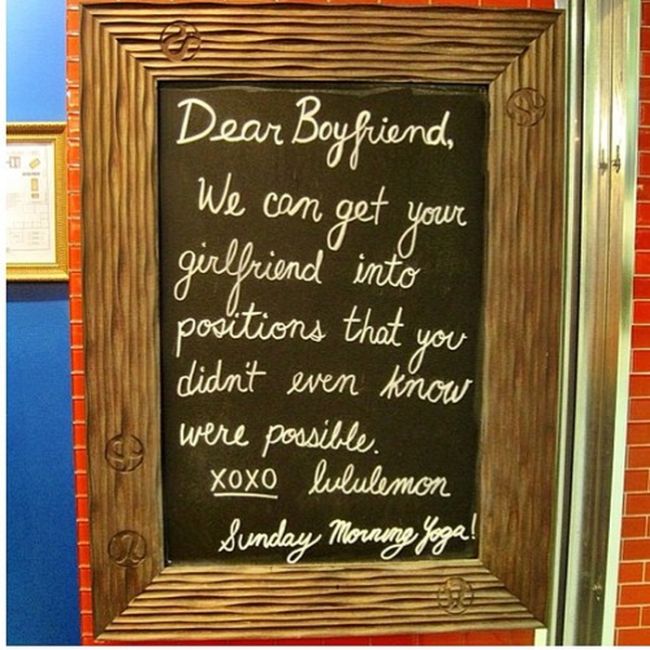 Dear Boyfriend,
We can get your
girlfriend into
positions that you
didn't even know
were possible.
xoxo lululemon
Sunday Morning Yoga!